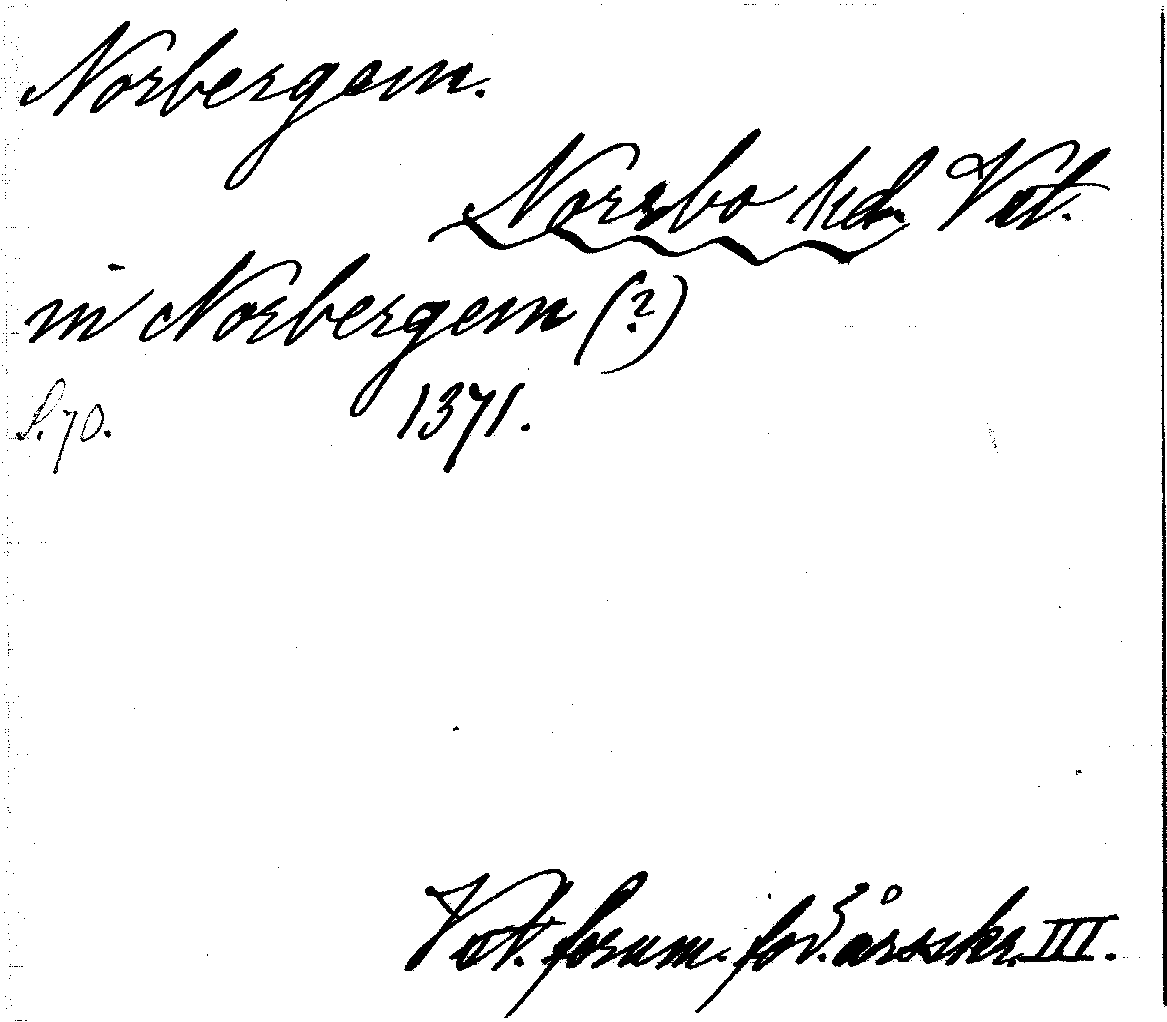 Norbergem.
Norrbo hd. Vstl.
in Norbergem (?)
S. 70. 1371.
Vstl. fornm. för:s årsskr. III.